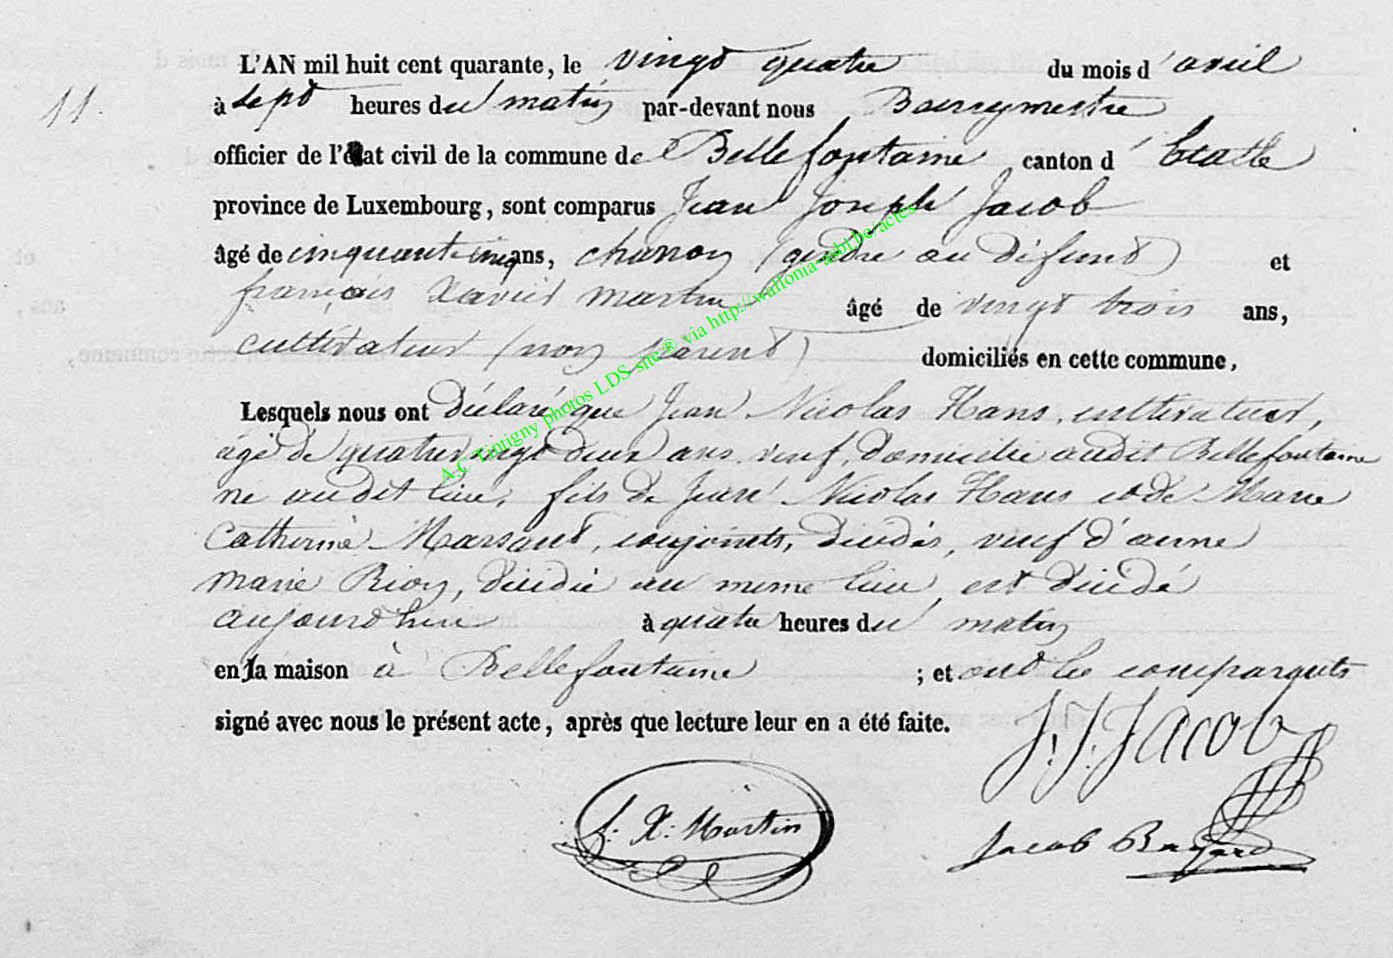 L'AN mil huit cent quarante, le vingt quatre du mois d'avril
11. à sept heures du matin par-devant nous Bourgmestre
officier de l'état civil de la commune de Bellefontaine canton d'Etalle
province de Luxembourg, sont comparus Jean Joseph Jacob
âgé de cinquante cinq ans, charron (gendre au défunt) et
françois Xavier Martin âgé de vingt trois ans,
cultivateur (non parent) domiciliés en cette commune,
Lesquels nous ont déclaré que Jean Nicolas Hans, cultivateur,
âgé de quatre vingt deux ans, veuf, domicilié audit Bellefontaine
né audit lieu, fils de Jean Nicolas Hans et de Marie
Catherine Marsaut, conjoints, décédés, veuf d'anne
marie Rion, décédée au meme lieu, est décédé
aujourd'hui à quatre heures du matin
en la maison à Bellefontaine ; et ont les comparants
signé avec nous le présent acte, après que lecture leur en a été faite.
J. J. Jacob
f. X. Martin
Jacob
A.C Tintigny photos LDS site ® via http://wallonia-asbl.be/actes